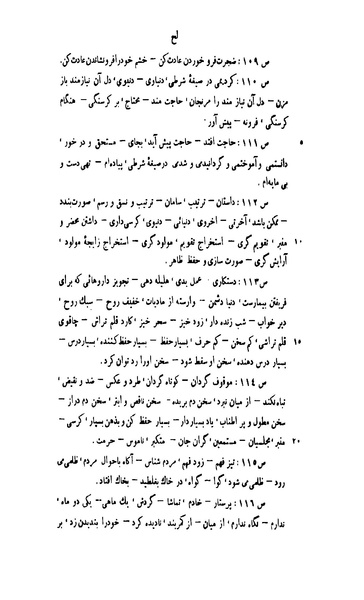 لح
ص ۱۰۹: ضجرت فرو خوردن عادت کن – خشم خود را فرو نشاندن عادت کن.
ص ۱۱۰: کردیمی در صیغهٔ شرطی، دنیاوی – دنیوی، دل آن نیازمند باز
مزن – دل آن نیاز مند را مرنجان، حاجت مند – محتاج، بر گرسنگی – هنگام
گرسنگی، فرونه – پیش آور.
۵ ص ۱۱۱: حاجت افتد – حاجت پیش آید، بجای – مستحق و در خور،
دانستمی و آموختمی و گردانیدی و شدی در صیغهٔ شرطی، پیاده‌ام – تهی دست و
بی مایه‌ام.
ص ۱۱۲: داستان – ترتیب، سامان – ترتیب و نسق و رسم، صورت بندد
– ممکن باشد، آخرتی – اخروی، دنیائی – دنیوی، کرسی‌داری – داشتن محضر و
۱۰ منبر، تقویم گری – استخراج تقویم، مولود گری – استخراج زایجهٔ مولود،
آرایش گری – صورت سازی و حفظ ظاهر.
ص ۱۱۳: دستکاری – عمل یدی، هلیله دهی – تجویز داروهائی که برای
فریفتن بیمارست، دنیا دشمن – وارسته از مادیات، خفیف روح – سبک روح،
دیر خواب – شب زنده دار، زود خیز – سحر خیز، کارد قلم تراش – چاقوی
۱۵ قلم تراشی، کم سخن – کم حرف، بسیار حفظ – بسیار حفظ کننده، بسیار درس –
بسیار درس دهنده، سخن او سقط شود – سخن او را رد توان کرد.
ص ۱۱۴: موقوف گردان – کوتاه گردان، طرد و عکس – ضد و نقیض،
تباه نکند – از میان نبرد، سخن دم بریده – سخن ناقص و ابتر، سخن دم دراز –
سخن مطول و پر اطناب، یاد بسیار دار – بسیار حفظ کن و بذهن بسپار، کرسی –
۲۰ منبر، مجلسیان – مستمعین، گران جان – متکبر، ناموس – حرمت.
ص ۱۱۵: تیز فهم – زود فهم، مردم شناس – آگاه باحوال مردم، ظلمی می
رود – ظلمی می شود، گوا – گواه، در خاک بغلطید – بخاک افتاد.
ص ۱۱۶: پرستار – خادم، تماشا – گردش، یک ماهی – یکی دو ماه،
ندارم – نگاه ندارم، از میان – از کمربند، نادیده کرد – خود را بندیدن زد، بر